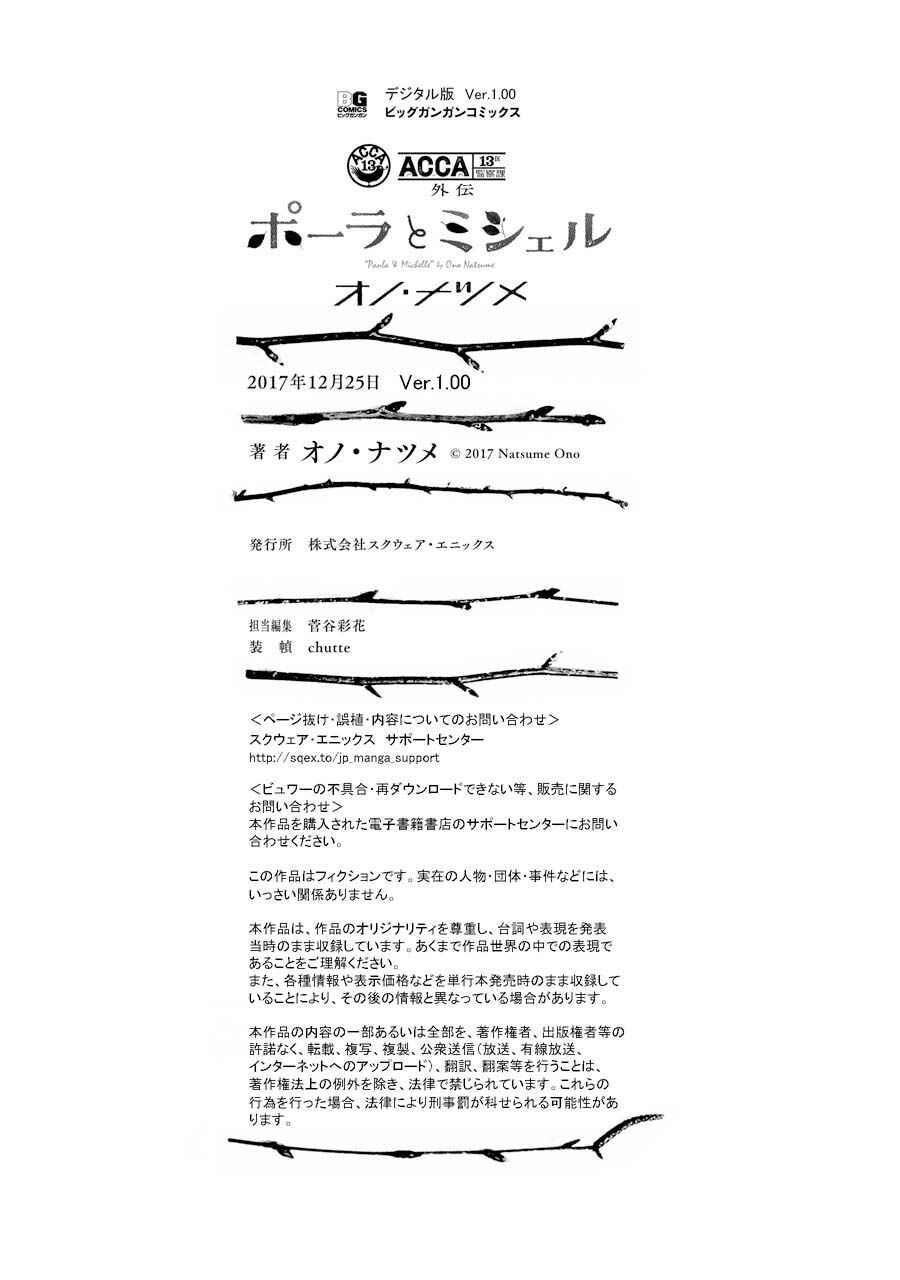 BG
COMICS
ビッグガンガン
デジタル版 Ver.1.00
ビッグガンガンコミックス
ACCA
13
ACCA 13区
監察課
外伝
ポーラとミシェル
"Paula & Michelle" by Ono Natsume
オノ・ナツメ
2017年12月25日 Ver.1.00
著者 オノ・ナツメ © 2017 Natsume Ono
発行所 株式会社スクウェア・エニックス
担当編集 菅谷彩花
装幀 chutte
＜ページ抜け・誤植・内容についてのお問い合わせ＞
スクウェア・エニックス サポートセンター
http://sqex.to/jp_manga_support
＜ビュワーの不具合・再ダウンロードできない等、販売に関する
お問い合わせ＞
本作品を購入された電子書籍書店のサポートセンターにお問い
合わせください。
この作品はフィクションです。実在の人物・団体・事件などには、
いっさい関係ありません。
本作品は、作品のオリジナリティを尊重し、台詞や表現を発表
当時のまま収録しています。あくまで作品世界の中での表現で
あることをご理解ください。
また、各種情報や表示価格などを単行本発売時のまま収録して
いることにより、その後の情報と異なっている場合があります。
本作品の内容の一部あるいは全部を、著作権者、出版権者等の
許諾なく、転載、複写、複製、公衆送信（放送、有線放送、
インターネットへのアップロード）、翻訳、翻案等を行うことは、
著作権法上の例外を除き、法律で禁じられています。これらの
行為を行った場合、法律により刑事罰が科せられる可能性があ
ります。